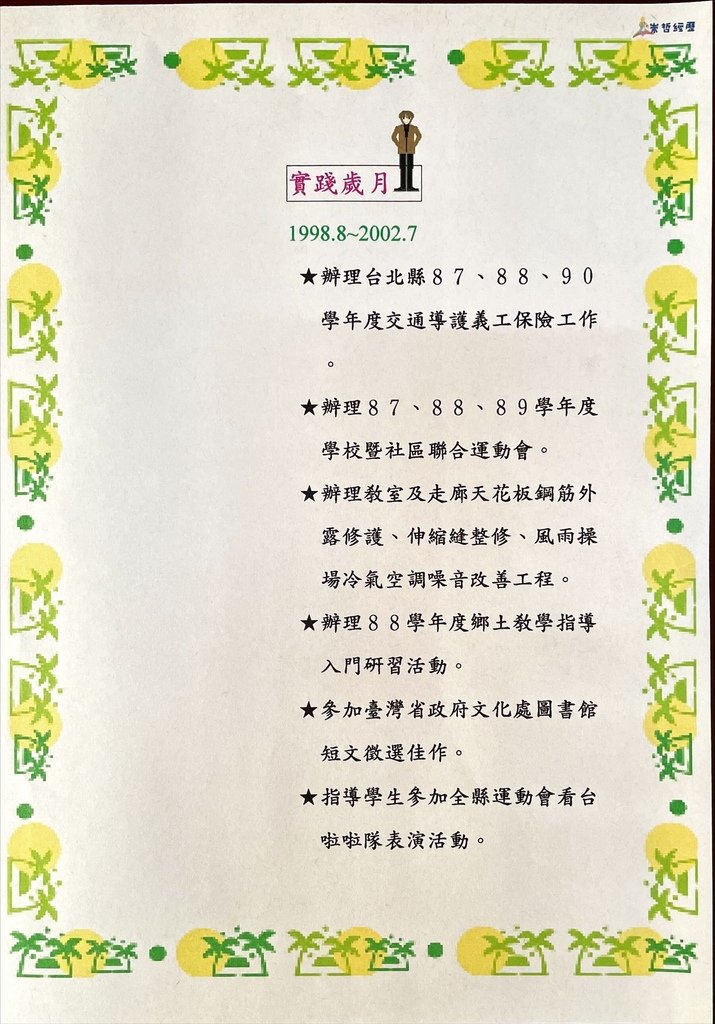 崇哲經歷
實踐歲月
1998.8~2002.7
★辦理台北縣８７、８８、９０
學年度交通導護義工保險工作
。
★辦理８７、８８、８９學年度
學校暨社區聯合運動會。
★辦理教室及走廊天花板鋼筋外
露修護、伸縮縫整修、風雨操
場冷氣空調噪音改善工程。
★辦理８８學年度鄉土教學指導
入門研習活動。
★參加臺灣省政府文化處圖書館
短文徵選佳作。
★指導學生參加全縣運動會看台
啦啦隊表演活動。